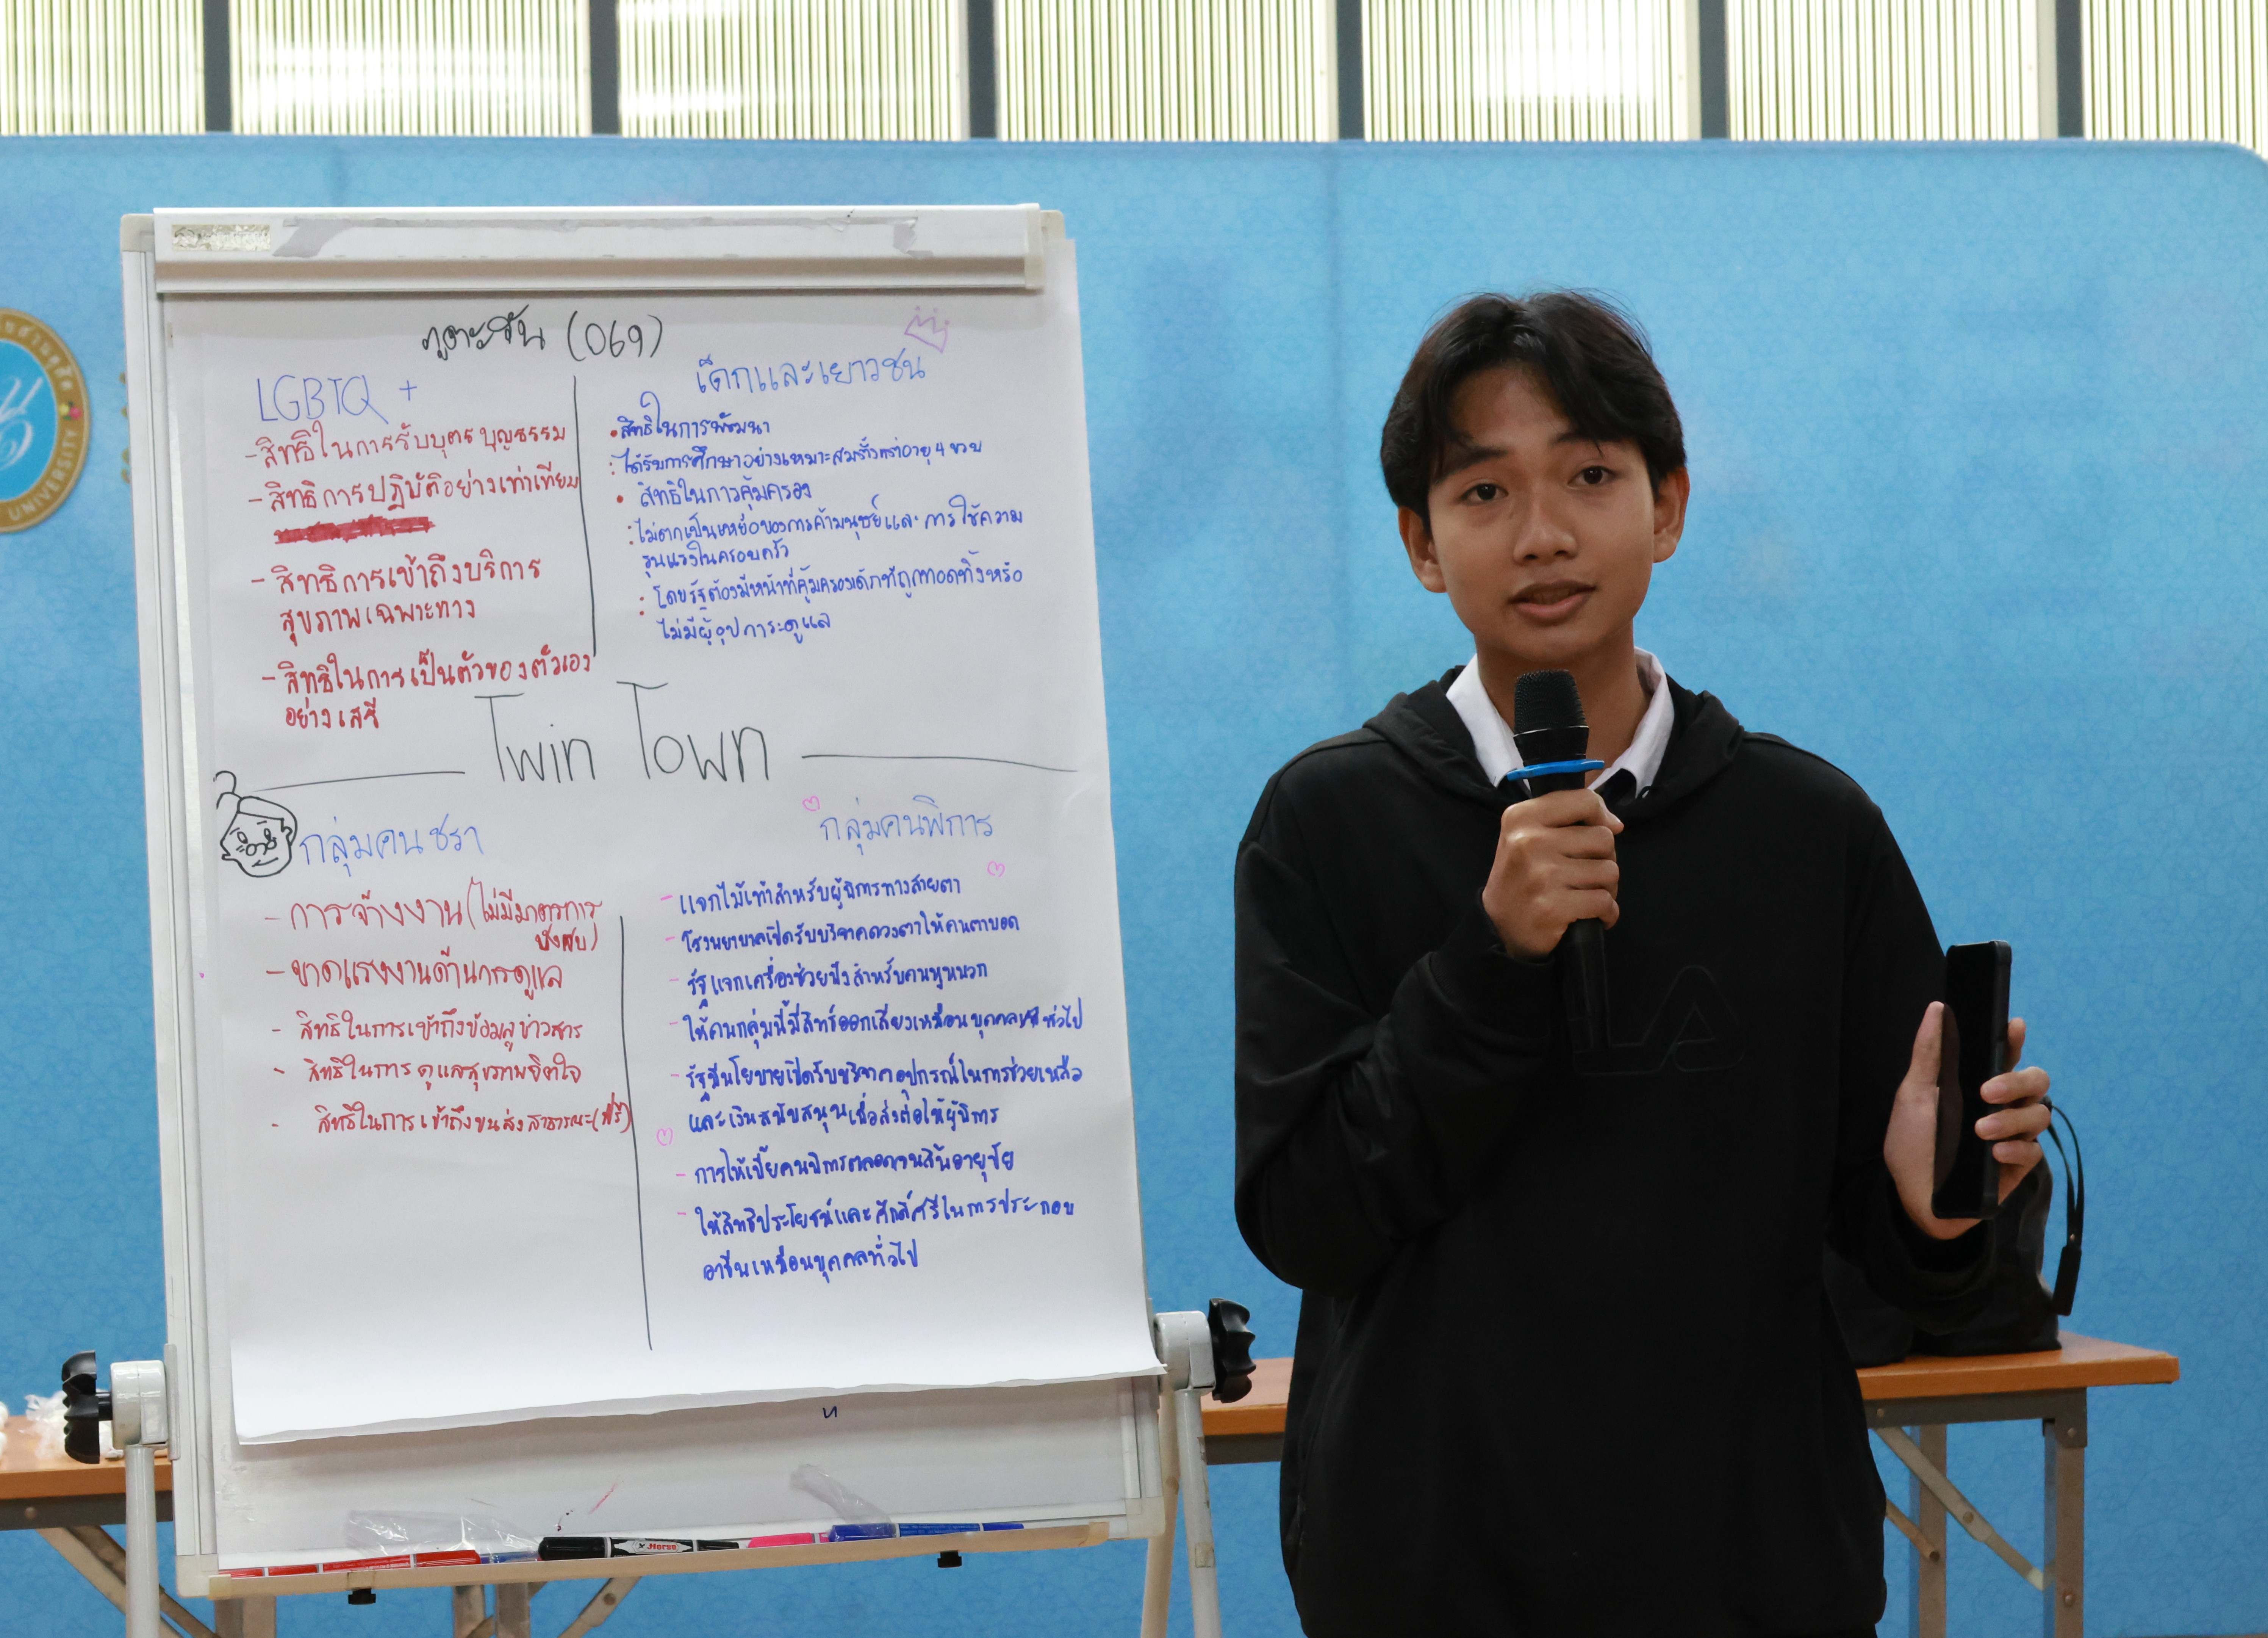 ภูตะวัน (069)
LGBTQ +
- สิทธิในการรับบุตรบุญธรรม
- สิทธิการปฏิบัติอย่างเท่าเทียม
- สิทธิการเข้าถึงบริการ
สุขภาพเฉพาะทาง
- สิทธิในการเป็นตัวของตัวเอง
อย่างเสรี
เด็กและเยาวชน
• สิทธิในการพัฒนา
: ได้รับการศึกษาอย่างเหมาะสมตั้งแต่อายุ 4 ขวบ
• สิทธิในการคุ้มครอง
: ไม่ตกเป็นเหยื่อของการค้ามนุษย์และการใช้ความ
รุนแรงในครอบครัว
: โดยรัฐต้องมีหน้าที่คุ้มครองเด็กที่ถูกทอดทิ้งหรือ
ไม่มีผู้อุปการะดูแล
Twin Town
กลุ่มคนชรา
- การจ้างงาน (ไม่มีมาตรการ
บังคับ)
- ขาดแรงงานด้านการดูแล
- สิทธิในการเข้าถึงข้อมูลข่าวสาร
- สิทธิในการดูแลสุขภาพจิตใจ
- สิทธิในการเข้าถึงขนส่งสาธารณะ (ฟรี)
กลุ่มคนพิการ
- แจกไม้เท้าสำหรับผู้พิการทางสายตา
- โรงพยาบาลเปิดรับบริจาคดวงตาให้คนตาบอด
- รัฐแจกเครื่องช่วยฟังสำหรับคนหูหนวก
- ให้คนกลุ่มนี้มีสิทธ์ออกเสียงเหมือนบุคคลทั่วไป
- รัฐมีนโยบายเปิดรับบริจาคอุปกรณ์ในการช่วยเหลือ
และเงินสนับสนุนเพื่อส่งต่อให้ผู้พิการ
- การให้เบี้ยคนพิการตลอดจนสิ้นอายุขัย
- ให้สิทธิประโยชน์และศักดิ์ศรีในการประกอบ
อาชีพเหมือนบุคคลทั่วไป
UNIVERSITY
Horse